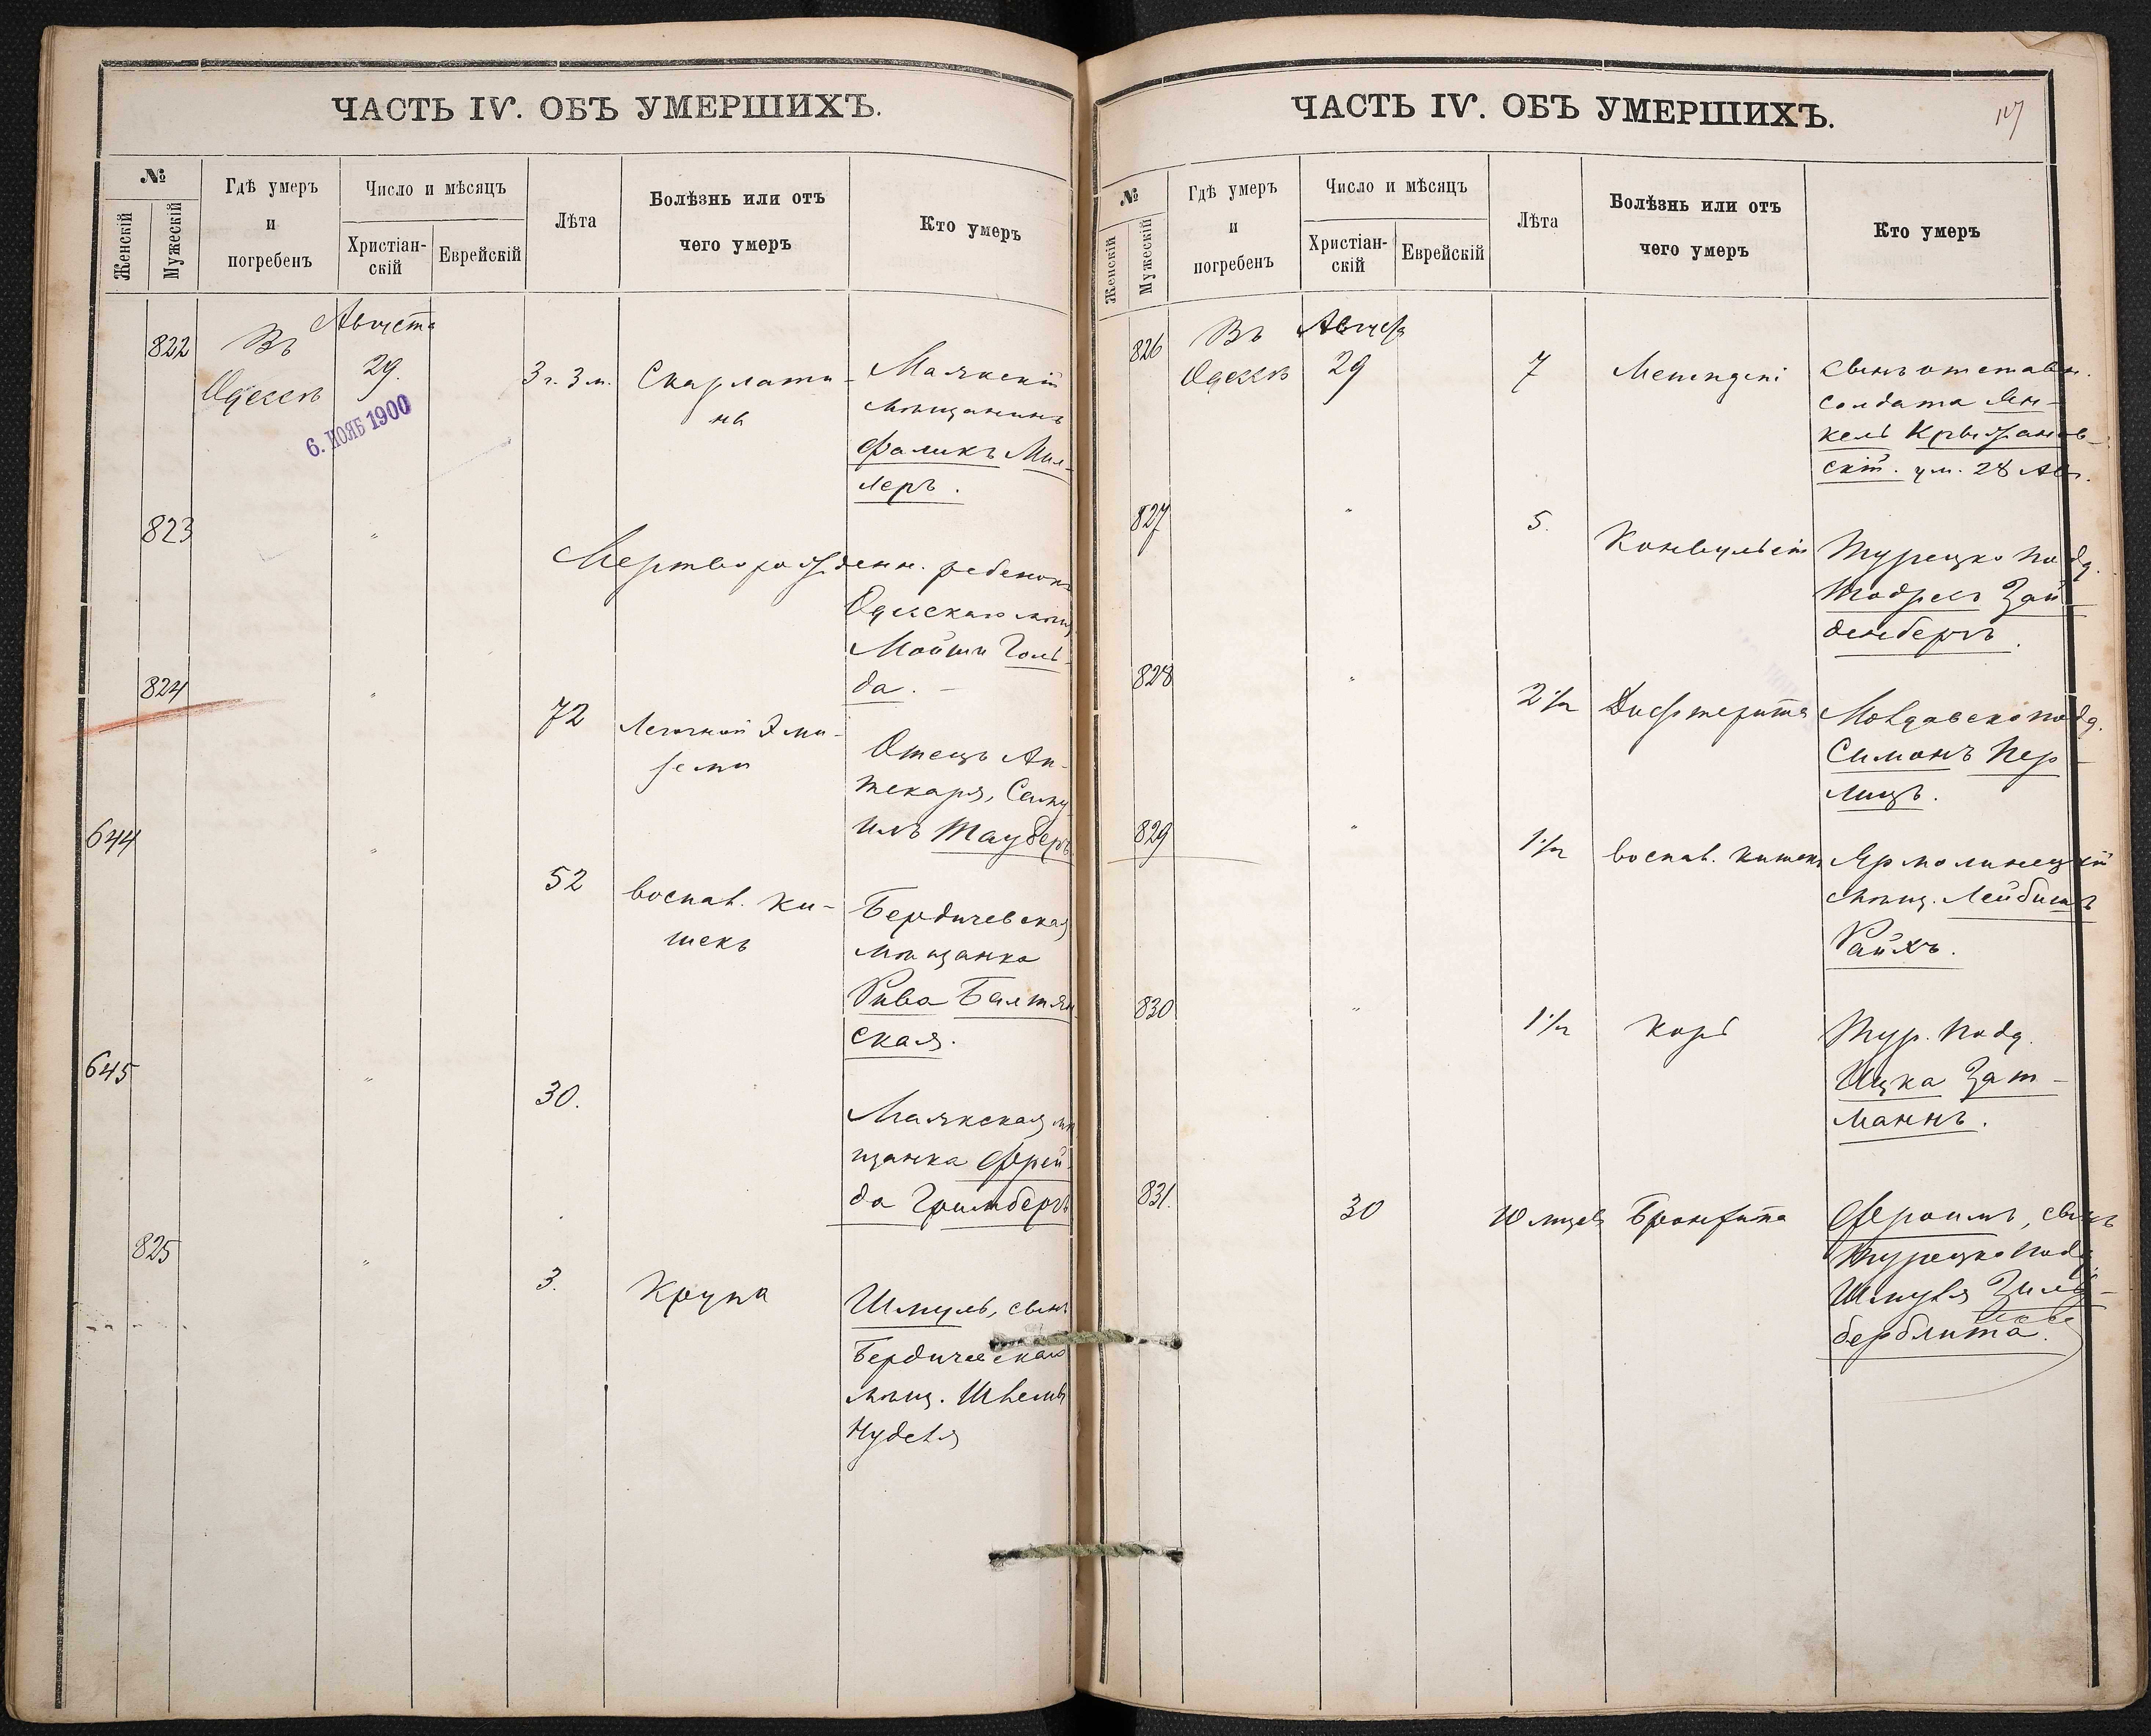 ЧАСТЬ IV. ОБЪ УМЕРШИХЪ.
№
Женскій
Мужескій
Гдѣ умеръ
и
погребенъ
Число и мѣсяцъ
Христіан-
скій
Еврейскій
Лѣта
Болѣзнь или отъ
чего умеръ
Кто умеръ
822
Въ
Одессѣ
Августа
29.
6. НОЯБ 1900
3 г. 3 м.
Скарлати-
на
Маякскій
мѣщанинъ
Фаликъ Мил-
леръ.
823
"
Мертворожденн. ребенокъ
Одесскаго мѣщ.
Мойши Голь-
да. –
824
"
72
Легочной Эм-
Отецъ Ап-
текаря, Саму-
илъ Тауберъ
644
"
52
воспал. ки-
шекъ
Бердичевская
мѣщанка
Рива Балтян-
ская.
645
"
30.
Маякская мѣ
щанка Фрей-
да Гринбергъ
825
"
3.
Крупа
Шмуль, сынъ
Бердичевскаго
мѣщ.
Нуделя
ЧАСТЬ IV. ОБЪ УМЕРШИХЪ.
№
Женскій
Мужескій
Гдѣ умеръ
и
погребенъ
Число и мѣсяцъ
Христіан-
скій
Еврейскій
Лѣта
Болѣзнь или отъ
чего умеръ
Кто умеръ
826
Въ
Одессѣ
29
7
сынъ отставн.
солдата Ян-
кель Крыжанов-
скій. ум. 28 Авг.
827
"
5.
Конвульсіи
Турецко Подд.
Тодресъ Зай
денбергъ.
828
"
2½
Дифтерита
Молдавско подд.
Симонъ Пер-
лицъ.
829
"
1½
воспал. кишекъ
Ярмолинецкій
мѣщ. Лейбишъ
Райхъ.
830
"
1½
корь
Тур. Подд.
Ицка Зат-
манъ.
831.
30
10 мцевъ
Бронхита
Фроимъ, сынъ
Турецко Подд.
Шмуля Зиль-
берблита.